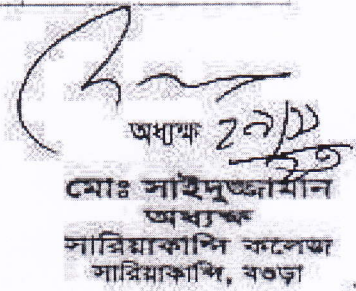 অধ্যক্ষ
মোঃ সাইদুজ্জামান
অধ্যক্ষ
সারিয়াকান্দি কলেজ
সারিয়াকান্দি, বগুড়া